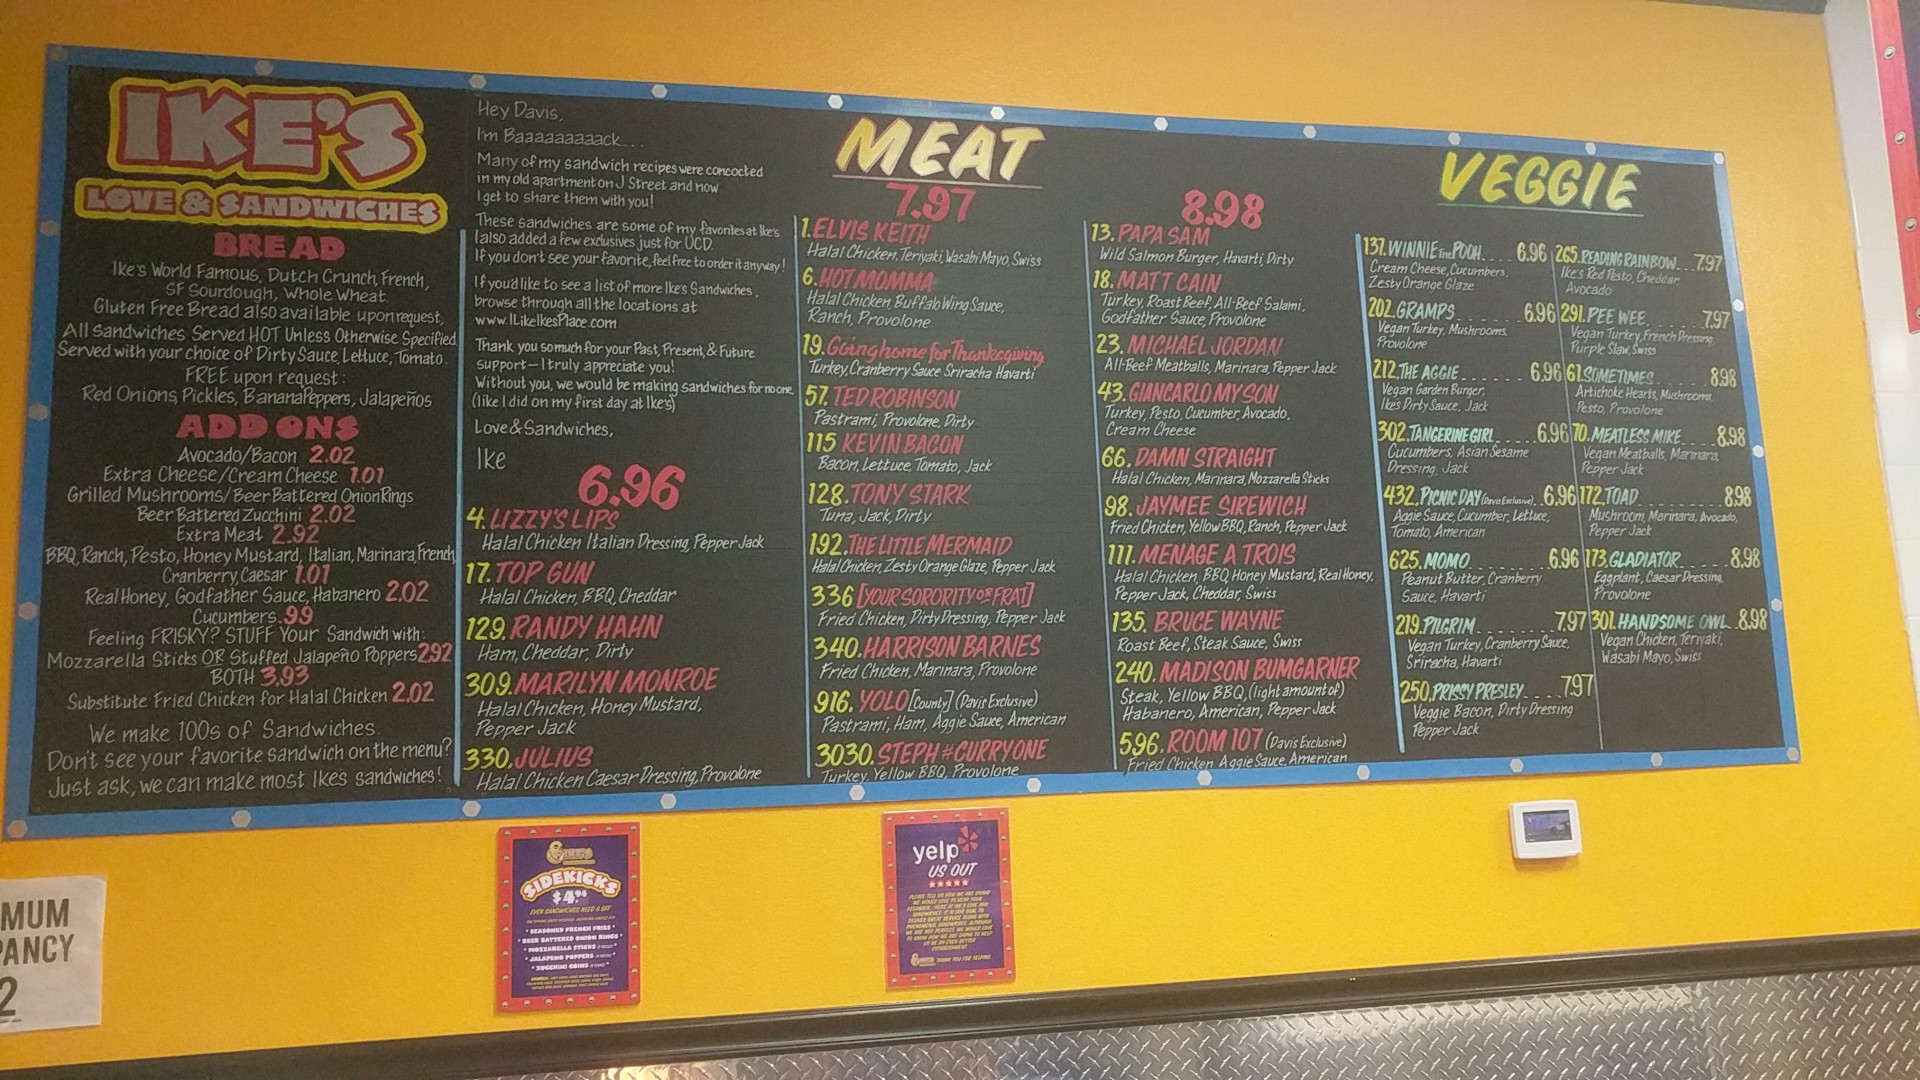 IKE'S
LOVE & SANDWICHES
BREAD
Ike's World Famous, Dutch Crunch, French,
SF Sourdough, Whole Wheat.
Gluten Free Bread also available upon request,
All Sandwiches Served HOT Unless Otherwise Specified
Served with your choice of Dirty Sauce, Lettuce, Tomato.
FREE upon request:
Red Onions, Pickles, Banana Peppers, Jalapeños
ADD ONS
Avocado/Bacon 2.02
Extra Cheese/Cream Cheese 1.01
Grilled Mushrooms/Beer Battered Onion Rings
Beer Battered Zucchini 2.02
Extra Meat 2.92
BBQ, Ranch, Pesto, Honey Mustard, Italian, Marinara, French,
Cranberry, Caesar 1.01
Real Honey, Godfather Sauce, Habanero 2.02
Cucumbers .99
Feeling FRISKY? STUFF Your Sandwich with:
Mozzarella Sticks OR Stuffed Jalapeño Poppers 2.92
BOTH 3.93
Substitute Fried Chicken for Halal Chicken 2.02
We make 100s of Sandwiches.
Don't see your favorite sandwich on the menu?
Just ask, we can make most Ikes sandwiches!
Hey Davis,
I'm Baaaaaaaaack...
Many of my sandwich recipes were concocted
in my old apartment on J Street and now
I get to share them with you!
These sandwiches are some of my favorites at Ike's.
I also added a few exclusives just for UCD.
If you don't see your favorite, feel free to order it anyway!
If you'd like to see a list of more Ike's Sandwiches,
browse through all the locations at
www.ILikeIkesPlace.com
Thank you so much for your Past, Present, & Future
support—I truly appreciate you!
Without you, we would be making sandwiches for no one.
(like I did on my first day at Ike's)
Love & Sandwiches,
Ike
6.96
4. LIZZY'S LIPS
Halal Chicken Italian Dressing, Pepper Jack
17. TOP GUN
Halal Chicken, BBQ, Cheddar
129. RANDY HAHN
Ham, Cheddar, Dirty
309. MARILYN MONROE
Halal Chicken, Honey Mustard,
Pepper Jack
330. JULIUS
Halal Chicken Caesar Dressing, Provolone
MEAT
7.97
1. ELVIS KEITH
Halal Chicken, Teriyaki, Wasabi Mayo, Swiss
6. HOT MOMMA
Halal Chicken, Buffalo Wing Sauce,
Ranch, Provolone
19. Going home for Thanksgiving
Turkey, Cranberry Sauce Sriracha Havarti
57. TED ROBINSON
Pastrami, Provolone, Dirty
115 KEVIN BACON
Bacon, Lettuce, Tomato, Jack
128. TONY STARK
Tuna, Jack, Dirty
192. THE LITTLE MERMAID
Halal Chicken, Zesty Orange Glaze, Pepper Jack
336 [YOUR SORORITY OR FRAT]
Fried Chicken, Dirty Dressing, Pepper Jack
340. HARRISON BARNES
Fried Chicken, Marinara, Provolone
916. YOLO [County] (Davis Exclusive)
Pastrami, Ham, Aggie Sauce, American
3030. STEPH #CURRYONE
Turkey, Yellow BBQ, Provolone
8.98
13. PAPA SAM
Wild Salmon Burger, Havarti, Dirty
18. MATT CAIN
Turkey, Roast Beef, All-Beef Salami,
Godfather Sauce, Provolone
23. MICHAEL JORDAN
All-Beef Meatballs, Marinara, Pepper Jack
43. GIANCARLO MY SON
Turkey, Pesto, Cucumber, Avocado,
Cream Cheese
66. DAMN STRAIGHT
Halal Chicken, Marinara, Mozzarella Sticks
98. JAYMEE SIREWICH
Fried Chicken, Yellow BBQ, Ranch, Pepper Jack
111. MENAGE A TROIS
Halal Chicken, BBQ, Honey Mustard, Real Honey,
Pepper Jack, Cheddar, Swiss
135. BRUCE WAYNE
Roast Beef, Steak Sauce, Swiss
240. MADISON BUMGARNER
Steak, Yellow BBQ, (light amount of)
Habanero, American, Pepper Jack
596. ROOM 107 (Davis Exclusive)
Fried Chicken Aggie Sauce, American
VEGGIE
137. WINNIE The POOH 6.96
Cream Cheese, Cucumbers,
Zesty Orange Glaze
202. GRAMPS 6.96
Vegan Turkey, Mushrooms,
Provolone
212. THE AGGIE 6.96
Vegan Garden Burger,
Ikes Dirty Sauce, Jack
302. TANGERINE GIRL 6.96
Cucumbers, Asian Sesame
Dressing, Jack
432. PICNIC DAY (Davis Exclusive) 6.96
Aggie Sauce, Cucumber, Lettuce,
Tomato, American
625. MOMO 6.96
Peanut Butter, Cranberry
Sauce, Havarti
219. PILGRIM 7.97
Vegan Turkey, Cranberry Sauce,
Sriracha, Havarti
250. PRISSY PRESLEY 7.97
Veggie Bacon, Dirty Dressing
Pepper Jack
265. READING RAINBOW 7.97
Ike's Red Pesto, Cheddar,
Avocado
291. PEE WEE 7.97
Vegan Turkey, French Dressing,
Purple Slaw, Swiss
61. SOMETIMES 8.98
Artichoke Hearts, Mushrooms,
Pesto, Provolone
70. MEATLESS MIKE 8.98
Vegan Meatballs, Marinara,
Pepper Jack
172. TOAD 8.98
Mushroom, Marinara, Avocado,
Pepper Jack
173. GLADIATOR 8.98
Eggplant, Caesar Dressing,
Provolone
301. HANDSOME OWL 8.98
Vegan Chicken, Teriyaki,
Wasabi Mayo, Swiss
MUM
PANCY
2
IKE'S
SIDEKICKS
EVEN SANDWICHES NEED A BFF
SEASONED FRENCH FRIES
BEER BATTERED ONION RINGS
MOZZARELLA STICKS
JALAPENO POPPERS
ZUCCHINI COINS
yelp
US OUT
PLEASE TELL US HOW WE ARE DOING!
WE WOULD LOVE TO HEAR YOUR
THANK YOU FOR YELPING.